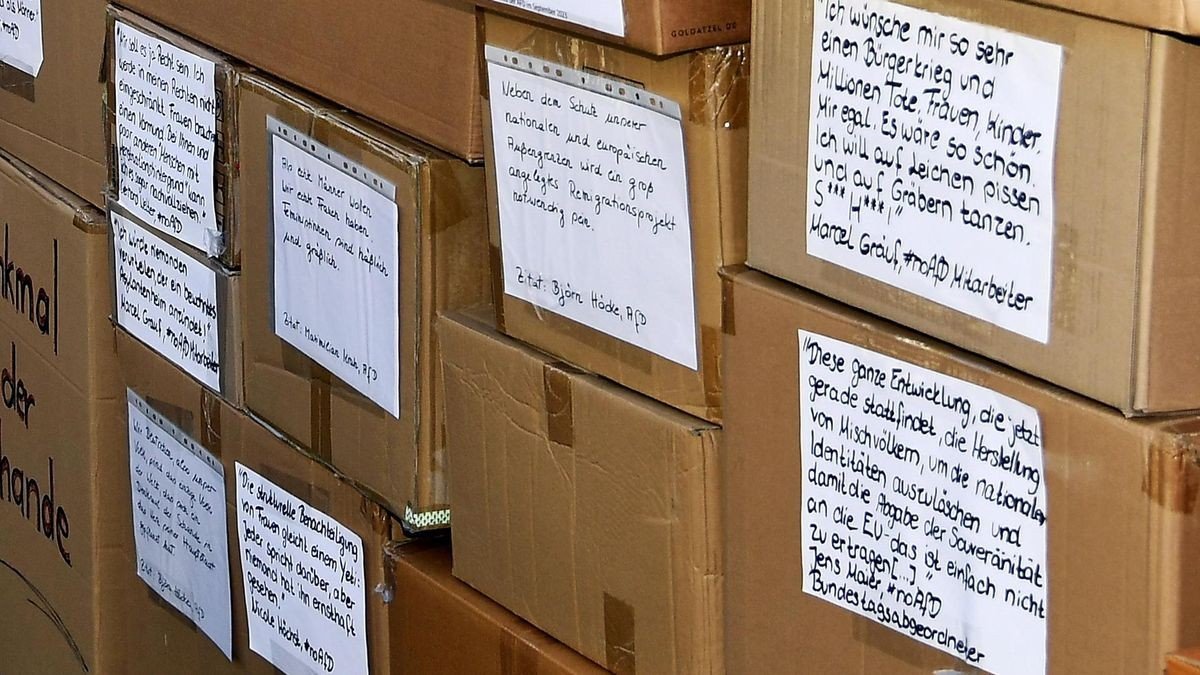 als Männer
"Mir soll es ja Recht sein. Ich
werde in meinen Rechten nicht
eingeschränkt. Frauen brauchen
einen Vormund. Bei Ihnen und
paar anderen Menschen mit
kann
ich es sogar nachvollziehen."
#noAfD
"Ich würde niemanden
verurteilen, der ein bewohntes
Asylantenheim anzündet!"
Marcel Grauf, #noAfD Mitarbeiter
der AfD im September 2023
GOLDATZEL DE
Als echte Männer wollen
wir echte Frauen haben.
Feministinnen sind häßlich
und gräßlich.
Zitat: Maximilian Krah, AfD
Neben dem Schutz unserer
nationalen und europäischen
Außengrenzen wird ein groß
angelegtes Remigrationsprojekt
notwendig sein.
Zitat: Björn Höcke, AfD
"Ich wünsche mir so sehr
einen Bürgerkrieg und
Millionen Tote, Frauen, Kinder.
Mir egal. Es wäre so schön.
Ich will auf Leichen pissen
und auf Gräbern tanzen.
S*** H***!"
Marcel Grauf, #noAfD Mitarbeiter
nkmal
der
hande
Wir Deutschen, also unser
Volk, sind das einzige Volk
der Welt, das sich ein
Denkmal der Schande in
das Herz seiner Hauptstadt
gepflanzt hat.
Zitat: Björn Höcke, AfD
"Die strukturelle Benachteiligung
von Frauen gleicht einem Yeti:
jeder spricht darüber, aber
niemand hat ihn ernsthaft
gesehen."
Nicole Höchst, #noAfD
"Diese ganze Entwicklung, die jetzt
gerade stattfindet, die Herstellung
von Mischvölkern, um die nationalen
Identitäten auszulöschen und
damit die Abgabe der Souveränität
an die EU - das ist einfach nicht
zu ertragen [...]"
Jens Maier, #noAfD
Bundestagsabgeordneter